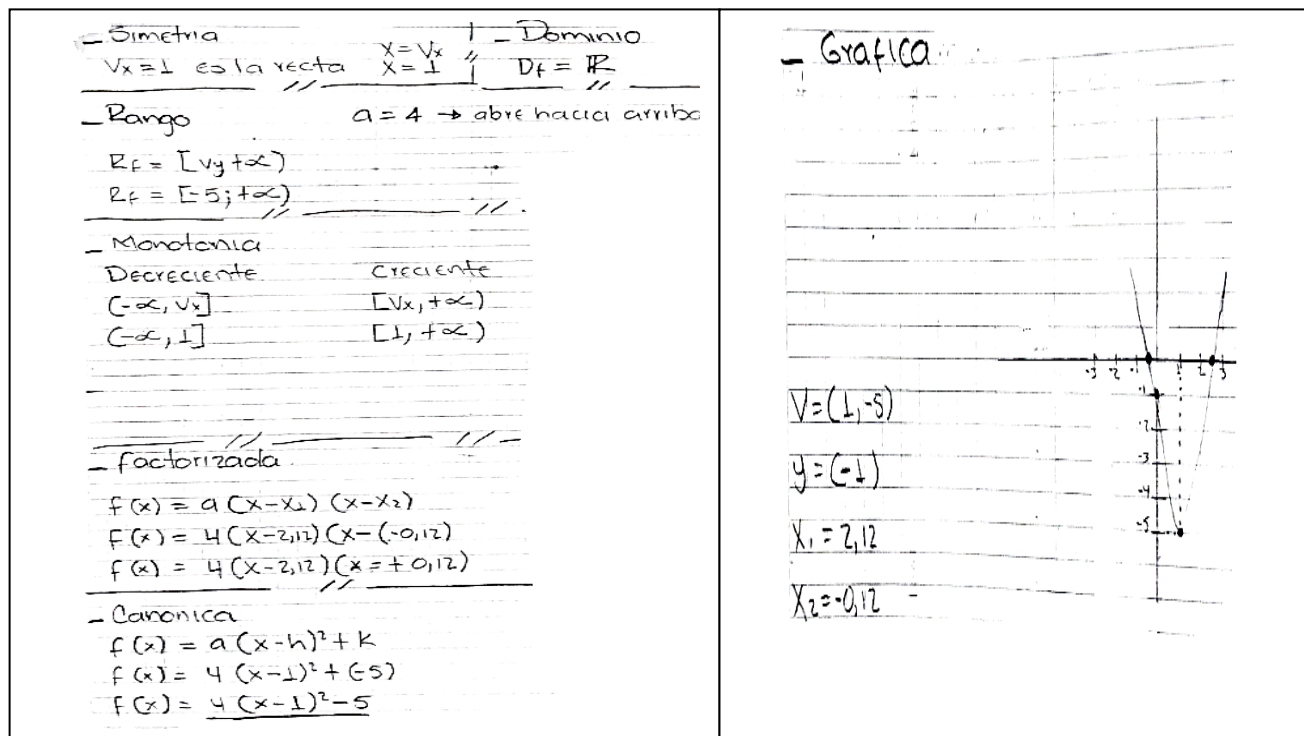 - Simetria
Vx = 1 es la recta x = Vx
x = 1
- Dominio
Df = ℝ
- Rango a = 4 → abre hacia arriba
Rf = [Vy +∝)
Rf = [-5; +∝)
- Monotonia
Decreciente Creciente
(-∝, Vx] [Vx, +∝)
(-∝, 1] [1, +∝)
- factorizada
f(x) = a(x-x1) (x-x2)
f(x) = 4(x-2,12)(x-(-0,12)
f(x) = 4(x-2,12)(x=+0,12)
- Canonica
f(x) = a(x-h)² + k
f(x) = 4(x-1)² + (-5)
f(x) = 4(x-1)² - 5
- Grafica
-3 -2 -1 1 2 3
-1
-2
-3
-4
-5
V=(1,-5)
y=(-1)
X1=2,12
X2=-0,12